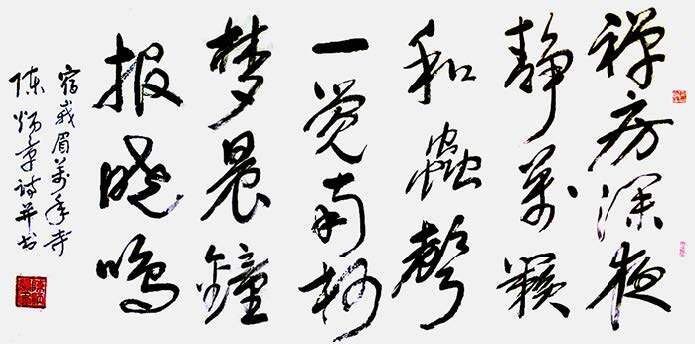 禅房深夜
静万籁
和蟲聲
一觉南柯
梦晨鐘
报晓鸣
宿峨眉万年寺
陈炳章诗并书